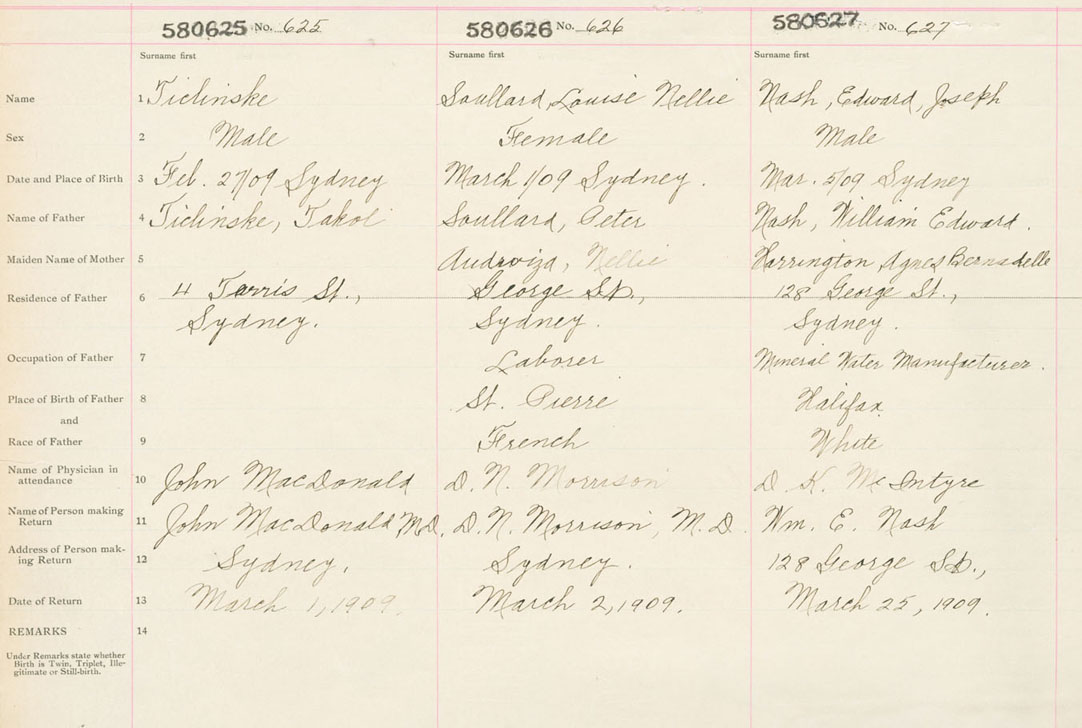 580625 No. 625 580626 No. 626 580627 No. 627
Surname first Surname first Surname first
Name 1 Ticlinske Soullard, Louise Nellie Nash, Edward, Joseph
Sex 2 Male Female Male
Date and Place of Birth 3 Feb. 27/09 Sydney March 1/09 Sydney. Mar. 5/09 Sydney
Name of Father 4 Ticlinske, Soullard, Peter Nash, William Edward.
Maiden Name of Mother 5 Nellie Harrington, Agnes Bernadelle
Residence of Father 6 4 St., George St., 128 George St.,
Sydney. Sydney. Sydney.
Occupation of Father 7 Laborer Mineral Water Manufacturer.
Place of Birth of Father 8 St. Pierre Halifax
and
Race of Father 9 French White
Name of Physician in
attendance 10 John MacDonald D. N. Morrison D K. McIntyre
Name of Person making
Return 11 John MacDonald M.D. D. N. Morrison, M.D. Wm. E. Nash
Address of Person mak-
ing Return 12 Sydney. Sydney. 128 George St.,
Date of Return 13 March 1, 1909. March 2, 1909. March 25, 1909.
REMARKS 14
Under Remarks state whether
Birth is Twin, Triplet, Ille-
gitimate or Still-birth.